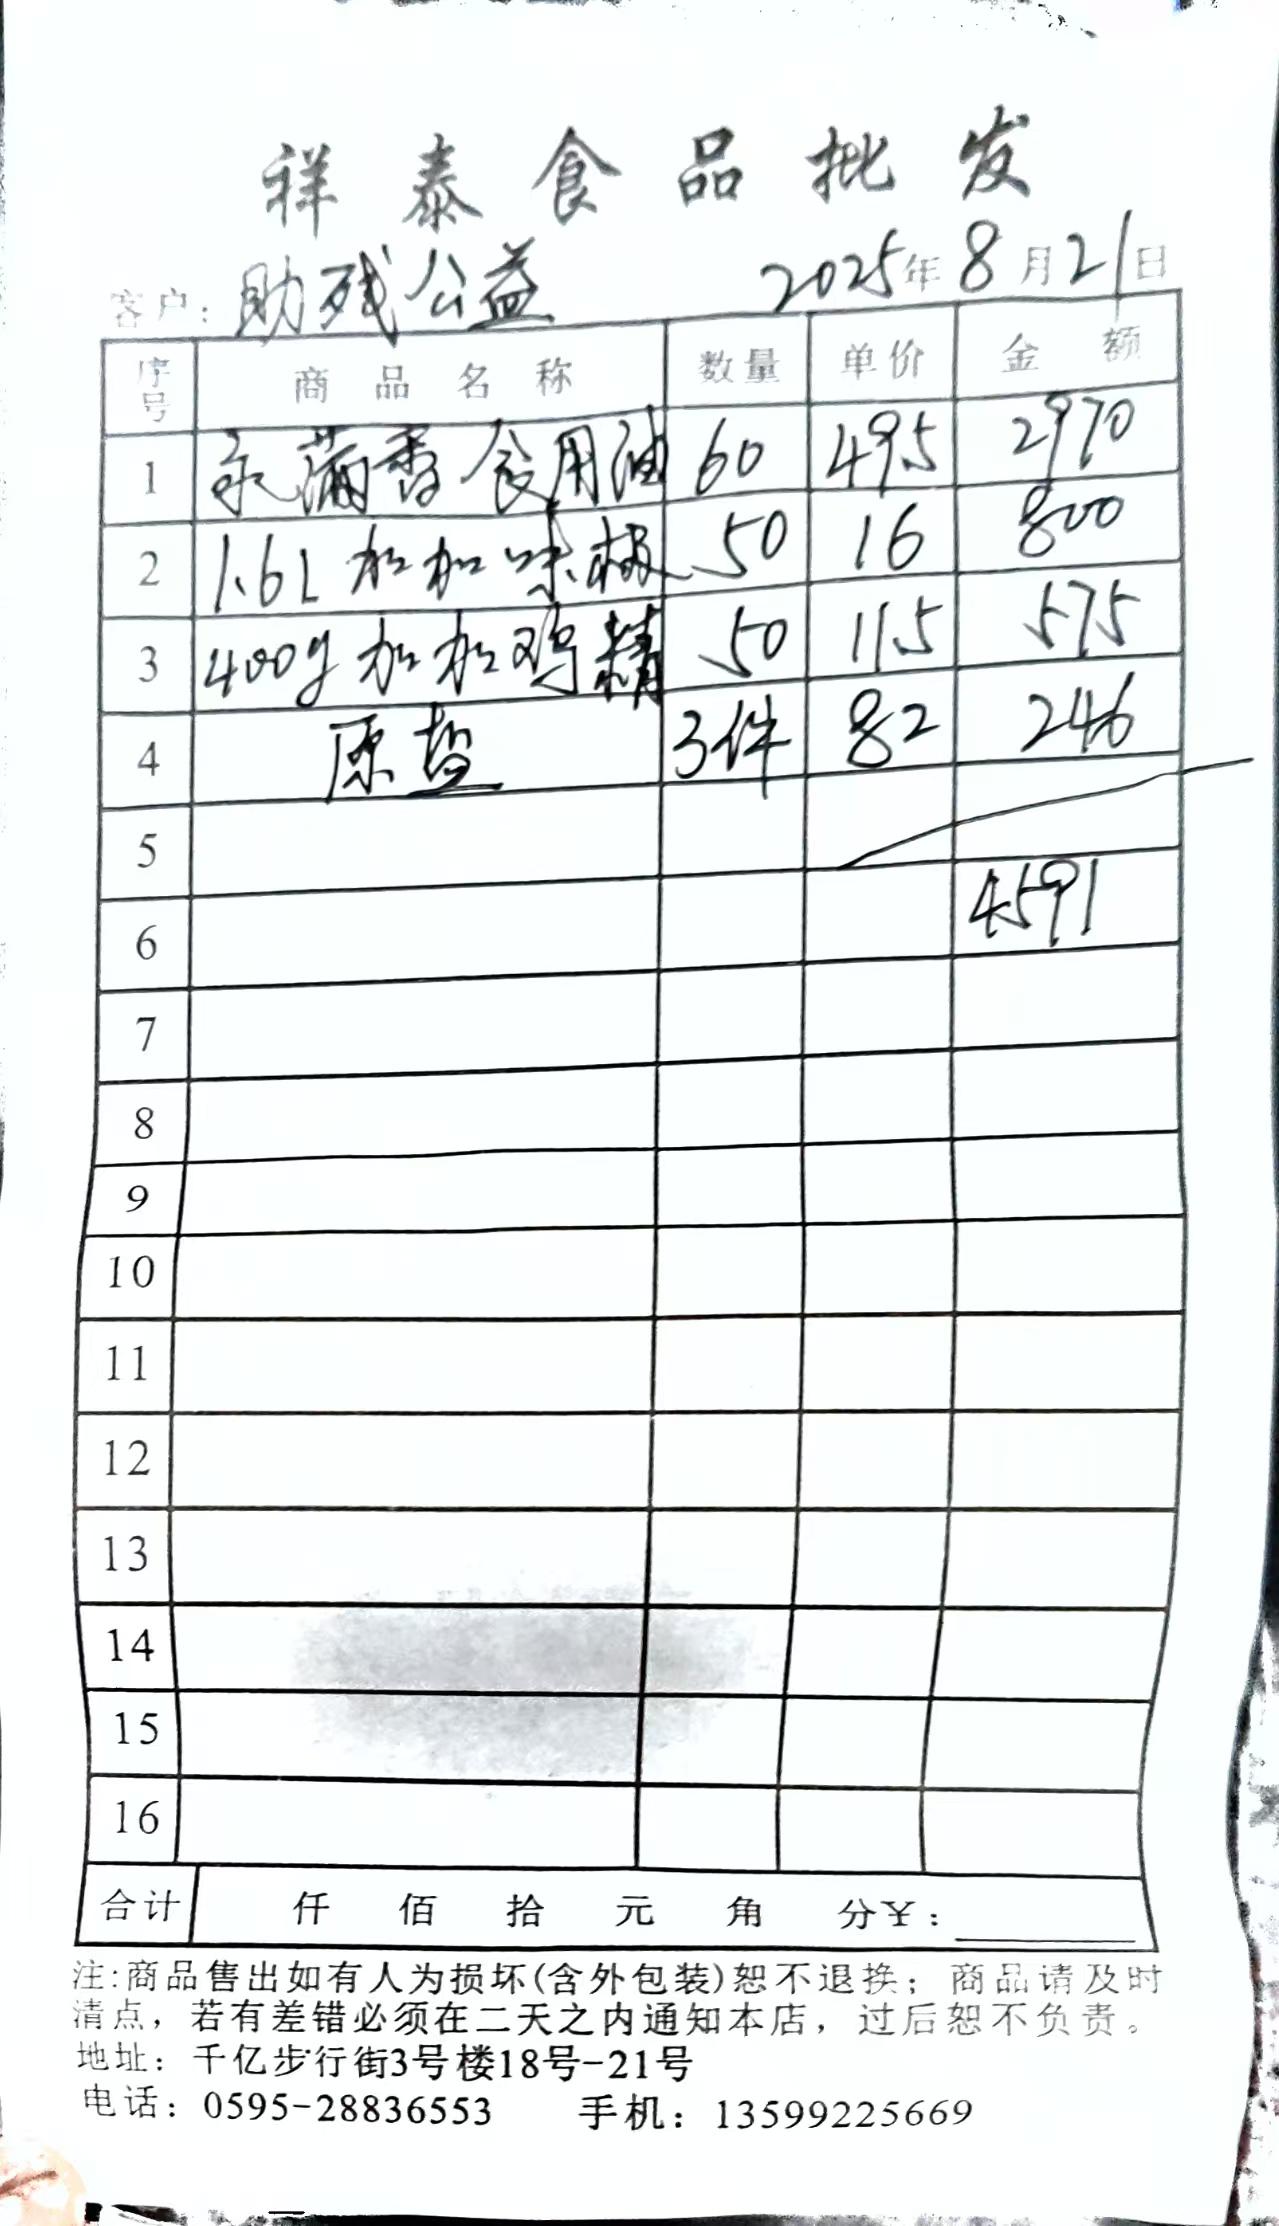 祥泰食品批发
客户：助残公益 2025年8月21日
序号 商品名称 数量 单价 金额
1 永蒲香食用油 60 495 2970
2 1.6L加加味极 50 16 800
3 400g加加鸡精 50 115 575
4 原盐 3件 82 246
5
6 4591
7
8
9
10
11
12
13
14
15
16
合计 仟 佰 拾 元 角 分￥：
注:商品售出如有人为损坏(含外包装)恕不退换；商品请及时
清点，若有差错必须在二天之内通知本店，过后恕不负责。
地址：千亿步行街3号楼18号-21号
电话：0595-28836553 手机：13599225669